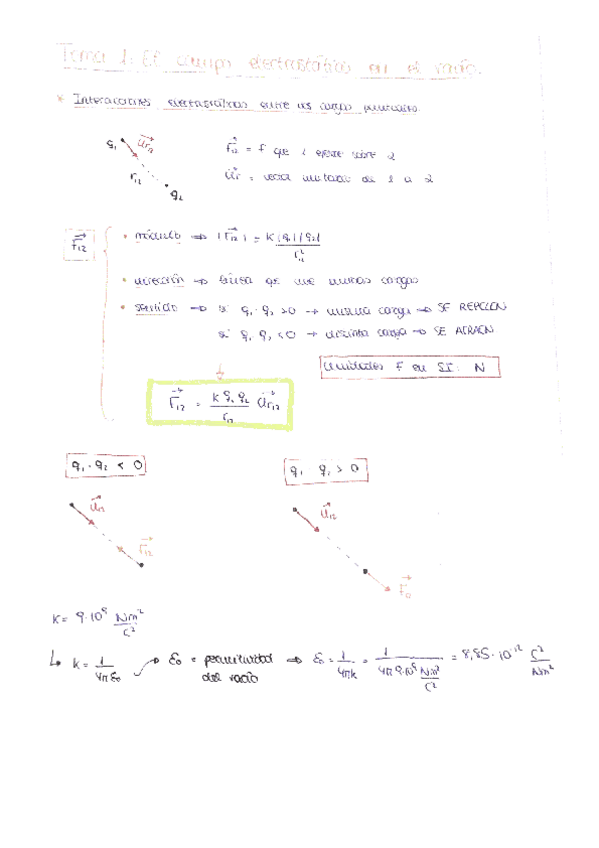 Tema 1: El campo electrostático en el vacío.
* Interacciones electrostáticas entre las cargas puntuales.
q₁ u⃗r₁₂
r₁₂
q₂
F⃗₁₂ = F que 1 ejerce sobre 2
u⃗r = vector unitario de 1 a 2
F⃗₁₂
• módulo → |F⃗₁₂| = K|q₁||q₂| / r₁₂²
• dirección → línea que une ambas cargas
• sentido → si q₁·q₂ >0 → misma carga → SE REPELEN
si q₁ q₂ <0 → distinta carga → SE ATRAEN
Unidades F en SI: N
F⃗₁₂ = K q₁ q₂ / r₁₂ u⃗r₁₂
q₁ · q₂ < 0
q₁ q₂ > 0
u⃗r₁₂
F⃗₁₂
u⃗r₁₂
K = 9·10⁹ Nm²/C²
↳ K = 1/4πε₀ → ε₀ = permitividad del vacío → ε₀ = 1/4πk = 1/4π9·10⁹ Nm²/C² = 8,85·10⁻¹² C²/Nm²